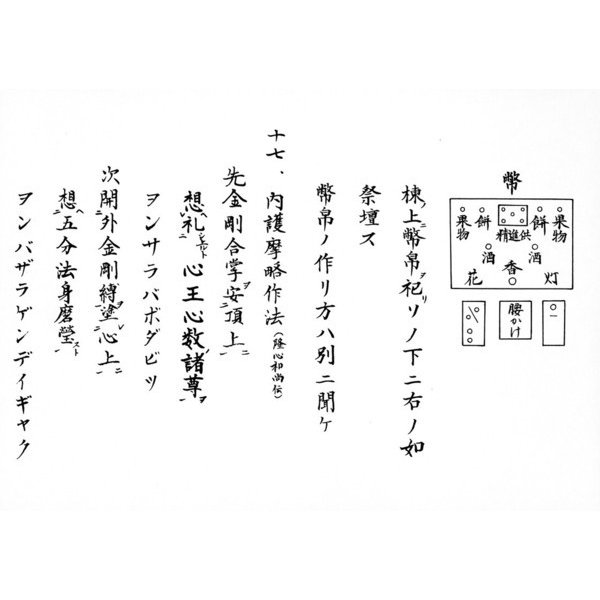 幣
果物 餅 精進供 餅 果物
酒 酒
花 香 灯
腰かけ
棟ノ上ニ幣帛ヲ祀リソノ下ニ右ノ如
祭壇ス
幣帛ノ作リ方ハ別ニ聞ケ
十七、内護摩略作法(隆心和尚伝)
先金剛合掌安頂上
想礼心王心数諸尊
ヲンサラバボダビツ
次開外金剛縛塗心上
想五分法身磨瑩
ヲンバザラゲンデイギャク